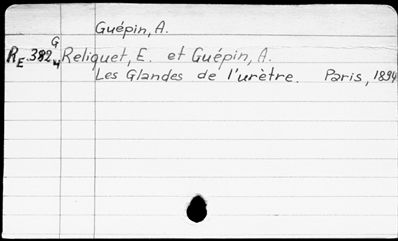 Guépin, A.
G
RE 382 4 Reliquet, E. et Guépin, A.
Les Glandes de l'urètre. Paris, 1894